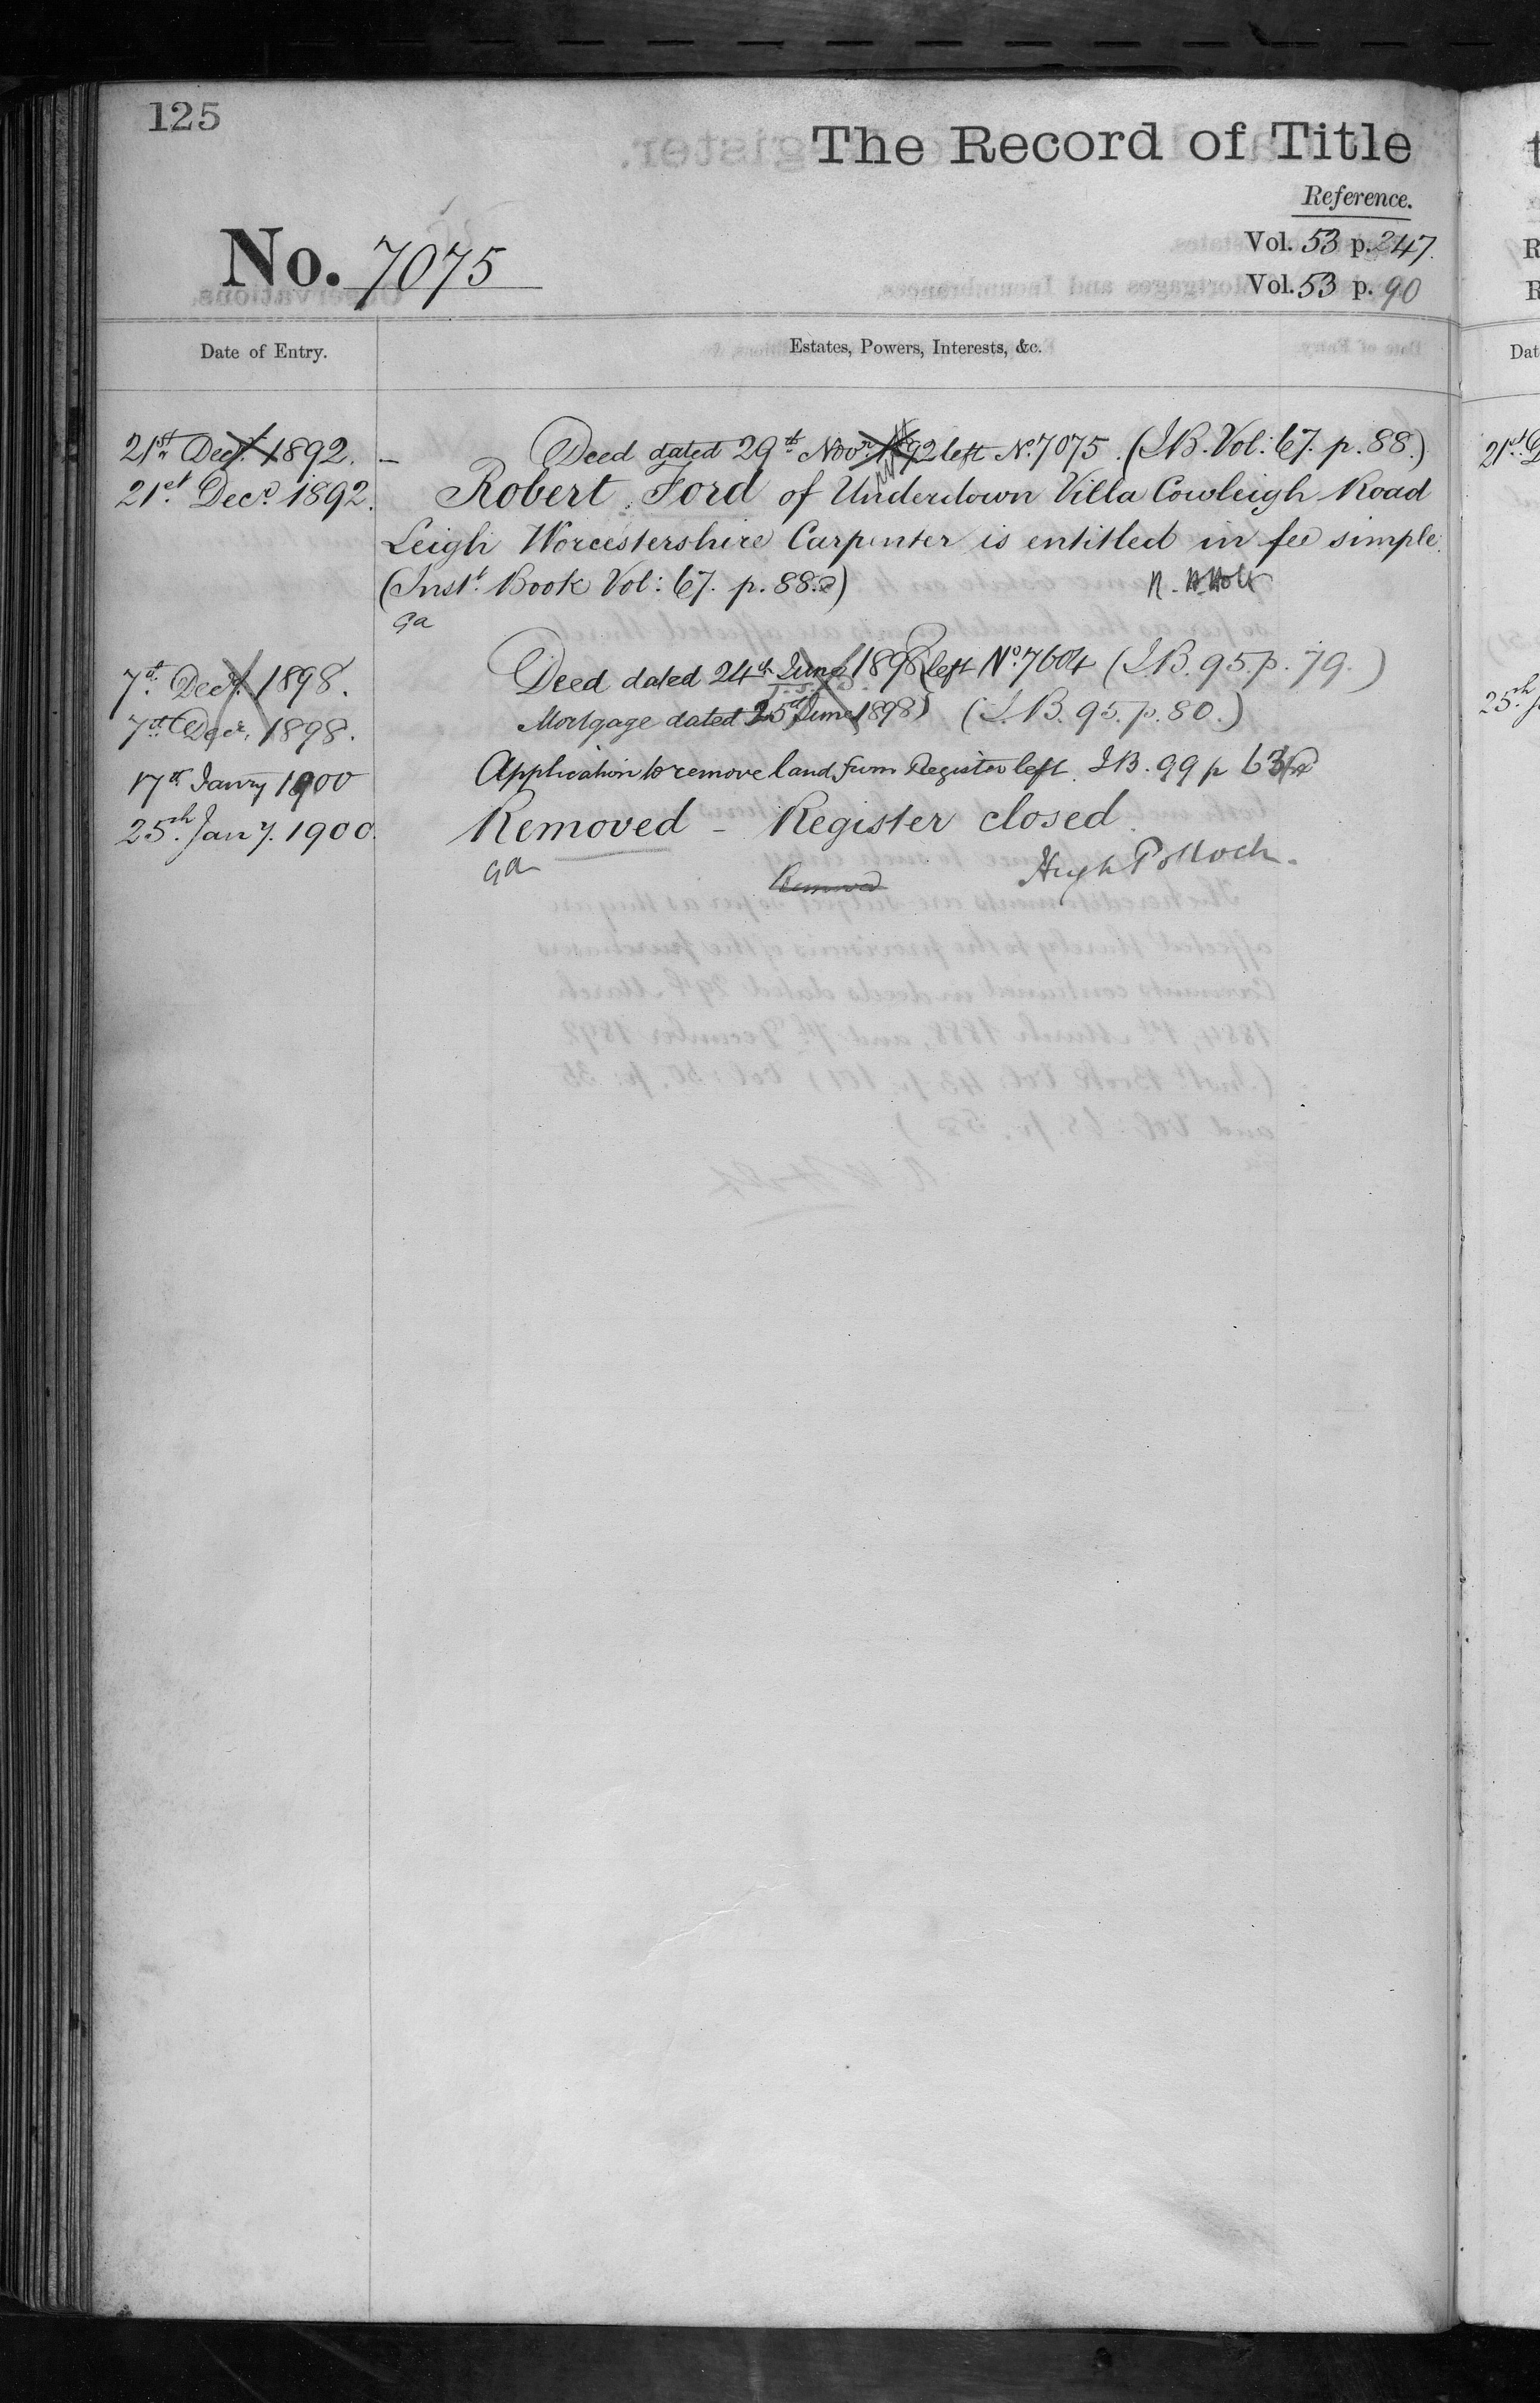 125
The Record of Title
Reference.
No. 7075
Vol. 53 p. 247.
Vol. 53 p. 90
Date of Entry.
Estates, Powers, Interests, &c.
21st Decr. 1892. - Deed dated 29th Novr. 1892 left No. 7075. (I.B. Vol: 67. p. 88.)
21st Decr. 1892. Robert Ford of Underdown Villa Cowleigh Road
Leigh Worcestershire Carpenter is entitled in fee simple.
(Inst. Book Vol: 67. p. 88.)
Ga
7th Decr. 1898. Deed dated 24th June 1898 left No. 7604 (I.B. 95. p. 79.)
7th Decr. 1898. Mortgage dated 25th June 1898) (I.B. 95. p. 80.)
17th Janry 1900 Application to remove land from Register left. I.B. 99 p
25th Jany. 1900. Removed - Register closed.
Ga
Removed
Hugh Pollock.
21st
25th
Dat